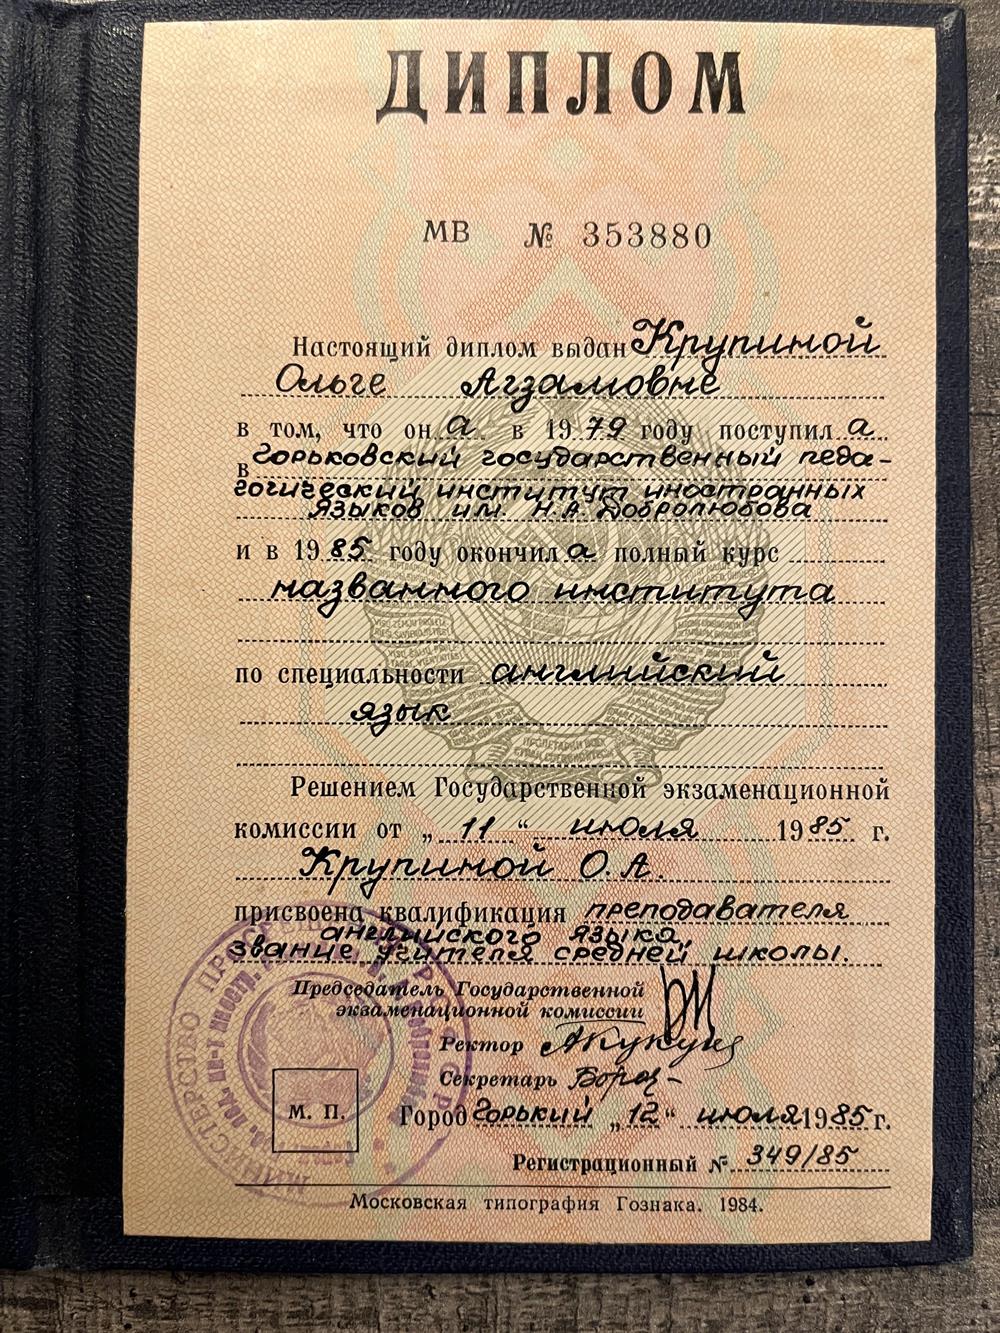 ДИПЛОМ
МВ № 353880
Настоящий диплом выдан Крупиной
Ольге Агзамовне
в том, что он а в 1979 году поступил а
в Горьковский государственный педа-
гогический институт иностранных
языков им. Н.А. Добролюбова
и в 1985 году окончил а полный курс
названного института
по специальности английский
язык
Решением Государственной экзаменационной
комиссии от „ 11 “ июля 1985 г.
Крупиной О.А.
присвоена квалификация преподавателя
английского языка
звание учителя средней школы.
Председатель Государственной
экзаменационной комиссии
Ректор
Секретарь
Город Горький „12“ июля 1985 г.
М. П.
Регистрационный № 349/85
Московская типография Гознака. 1984.